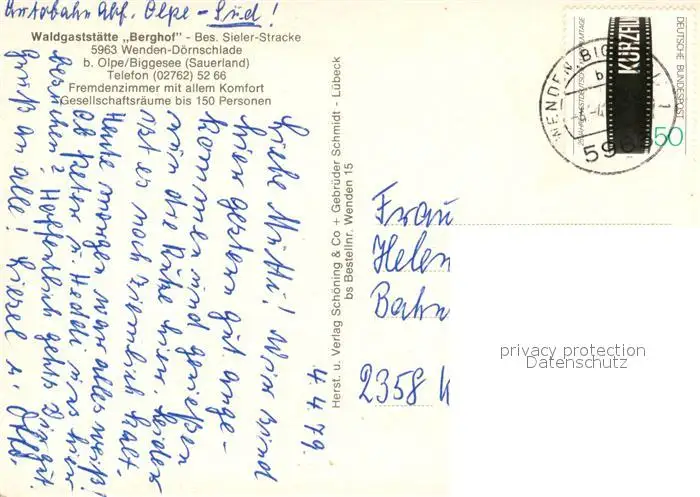 Autobahn Abf. Olpe - Süd!
Waldgaststätte „Berghof" - Bes. Sieler-Stracke
5963 Wenden-Dörnschlade
b. Olpe/Biggesee (Sauerland)
Telefon (02762) 52 66
Fremdenzimmer mit allem Komfort
Gesellschaftsräume bis 150 Personen
4.4.79.
Liebe Mutti! Wir sind
hier gestern gut ange-
kommen und genießen
nun die Ruhe hier. Leider
ist es noch ziemlich kalt.
Heute morgen war alles weiß!
Ob Peter u. Heddi uns hier
besuchen? Hoffentlich gehts Dir gut.
Gruß an alle! Liesel u. Otto.
Herst. u. Verlag Schöning & Co + Gebrüder Schmidt - Lübeck
bs Bestellnr. Wenden 15
KURZFILM
DEUTSCHE BUNDESPOST
50
WENDEN
596
Frau
Helen
Bahn
2358 K
privacy protection
Datenschutz